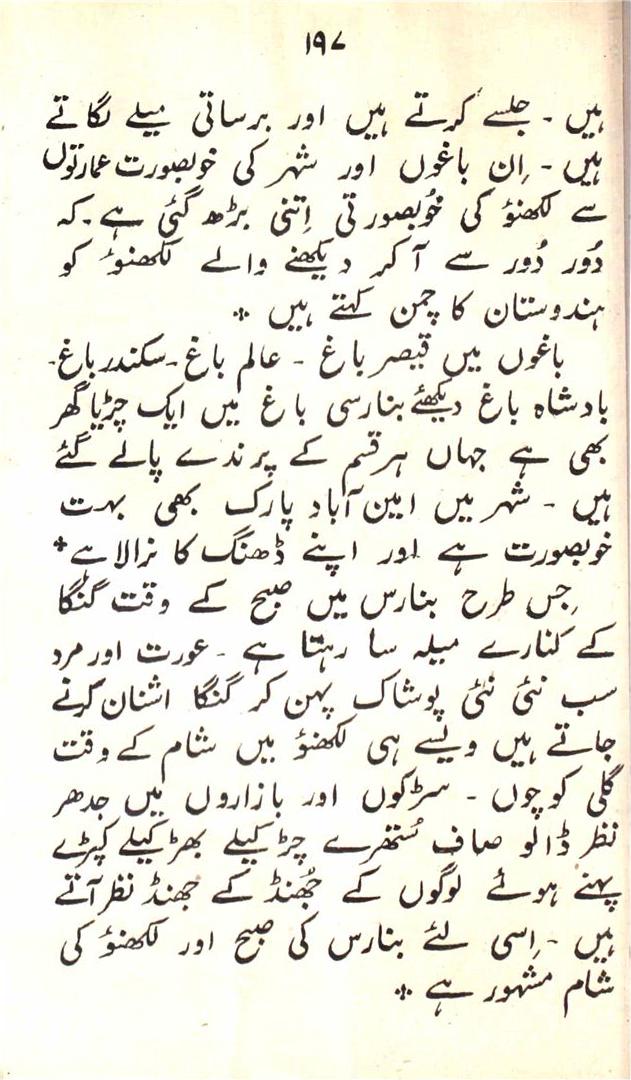 ۱۹۷
ہیں - جلسے کرتے ہیں اور برساتی میلے لگاتے
ہیں - اِن باغوں اور شہر کی خوبصورت عمارتوں
سے لکھنؤ کی خُوبصورتی اِتنی بڑھ گئی ہے - کہ
دُور دُور سے آ کر دیکھنے والے لکھنوٴ کو
ہندوستان کا چمن کہتے ہیں ٭
باغوں میں قیصر باغ - عالم باغ - سکندر باغ -
بادشاہ باغ دیکھئے بنارسی باغ میں ایک چڑیا گھر
بھی ہے جہاں ہر قسم کے پرندے پالے گئے
ہیں - شہر میں امین آباد پارک بھی بہت
خوبصورت ہے اور اپنے ڈھنگ کا نرالا ہے ٭
جِس طرح بنارس میں صبح کے وقت گنگا
کے کنارے میلہ سا رہتا ہے - عورت اور مرد
سب نئی نئی پوشاک پہن کر گنگا اشنان کرنے
جاتے ہیں ویسے ہی لکھنؤ میں شام کے وقت
گلی کوچوں - سڑکوں اور بازاروں میں جدھر
نظر ڈالو صاف سُتھرے چڑکیلے بھڑکیلے کپڑے
پہنے ہوئے لوگوں کے جُھنڈ کے جھنڈ نظر آتے
ہیں - اِسی لئے بنارس کی صبح اور لکھنؤ کی
شام مشہور ہے ٭